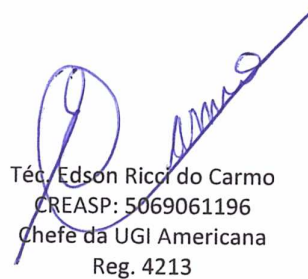 Téc. Edson Ricci do Carmo
CREASP: 5069061196
Chefe da UGI Americana
Reg. 4213